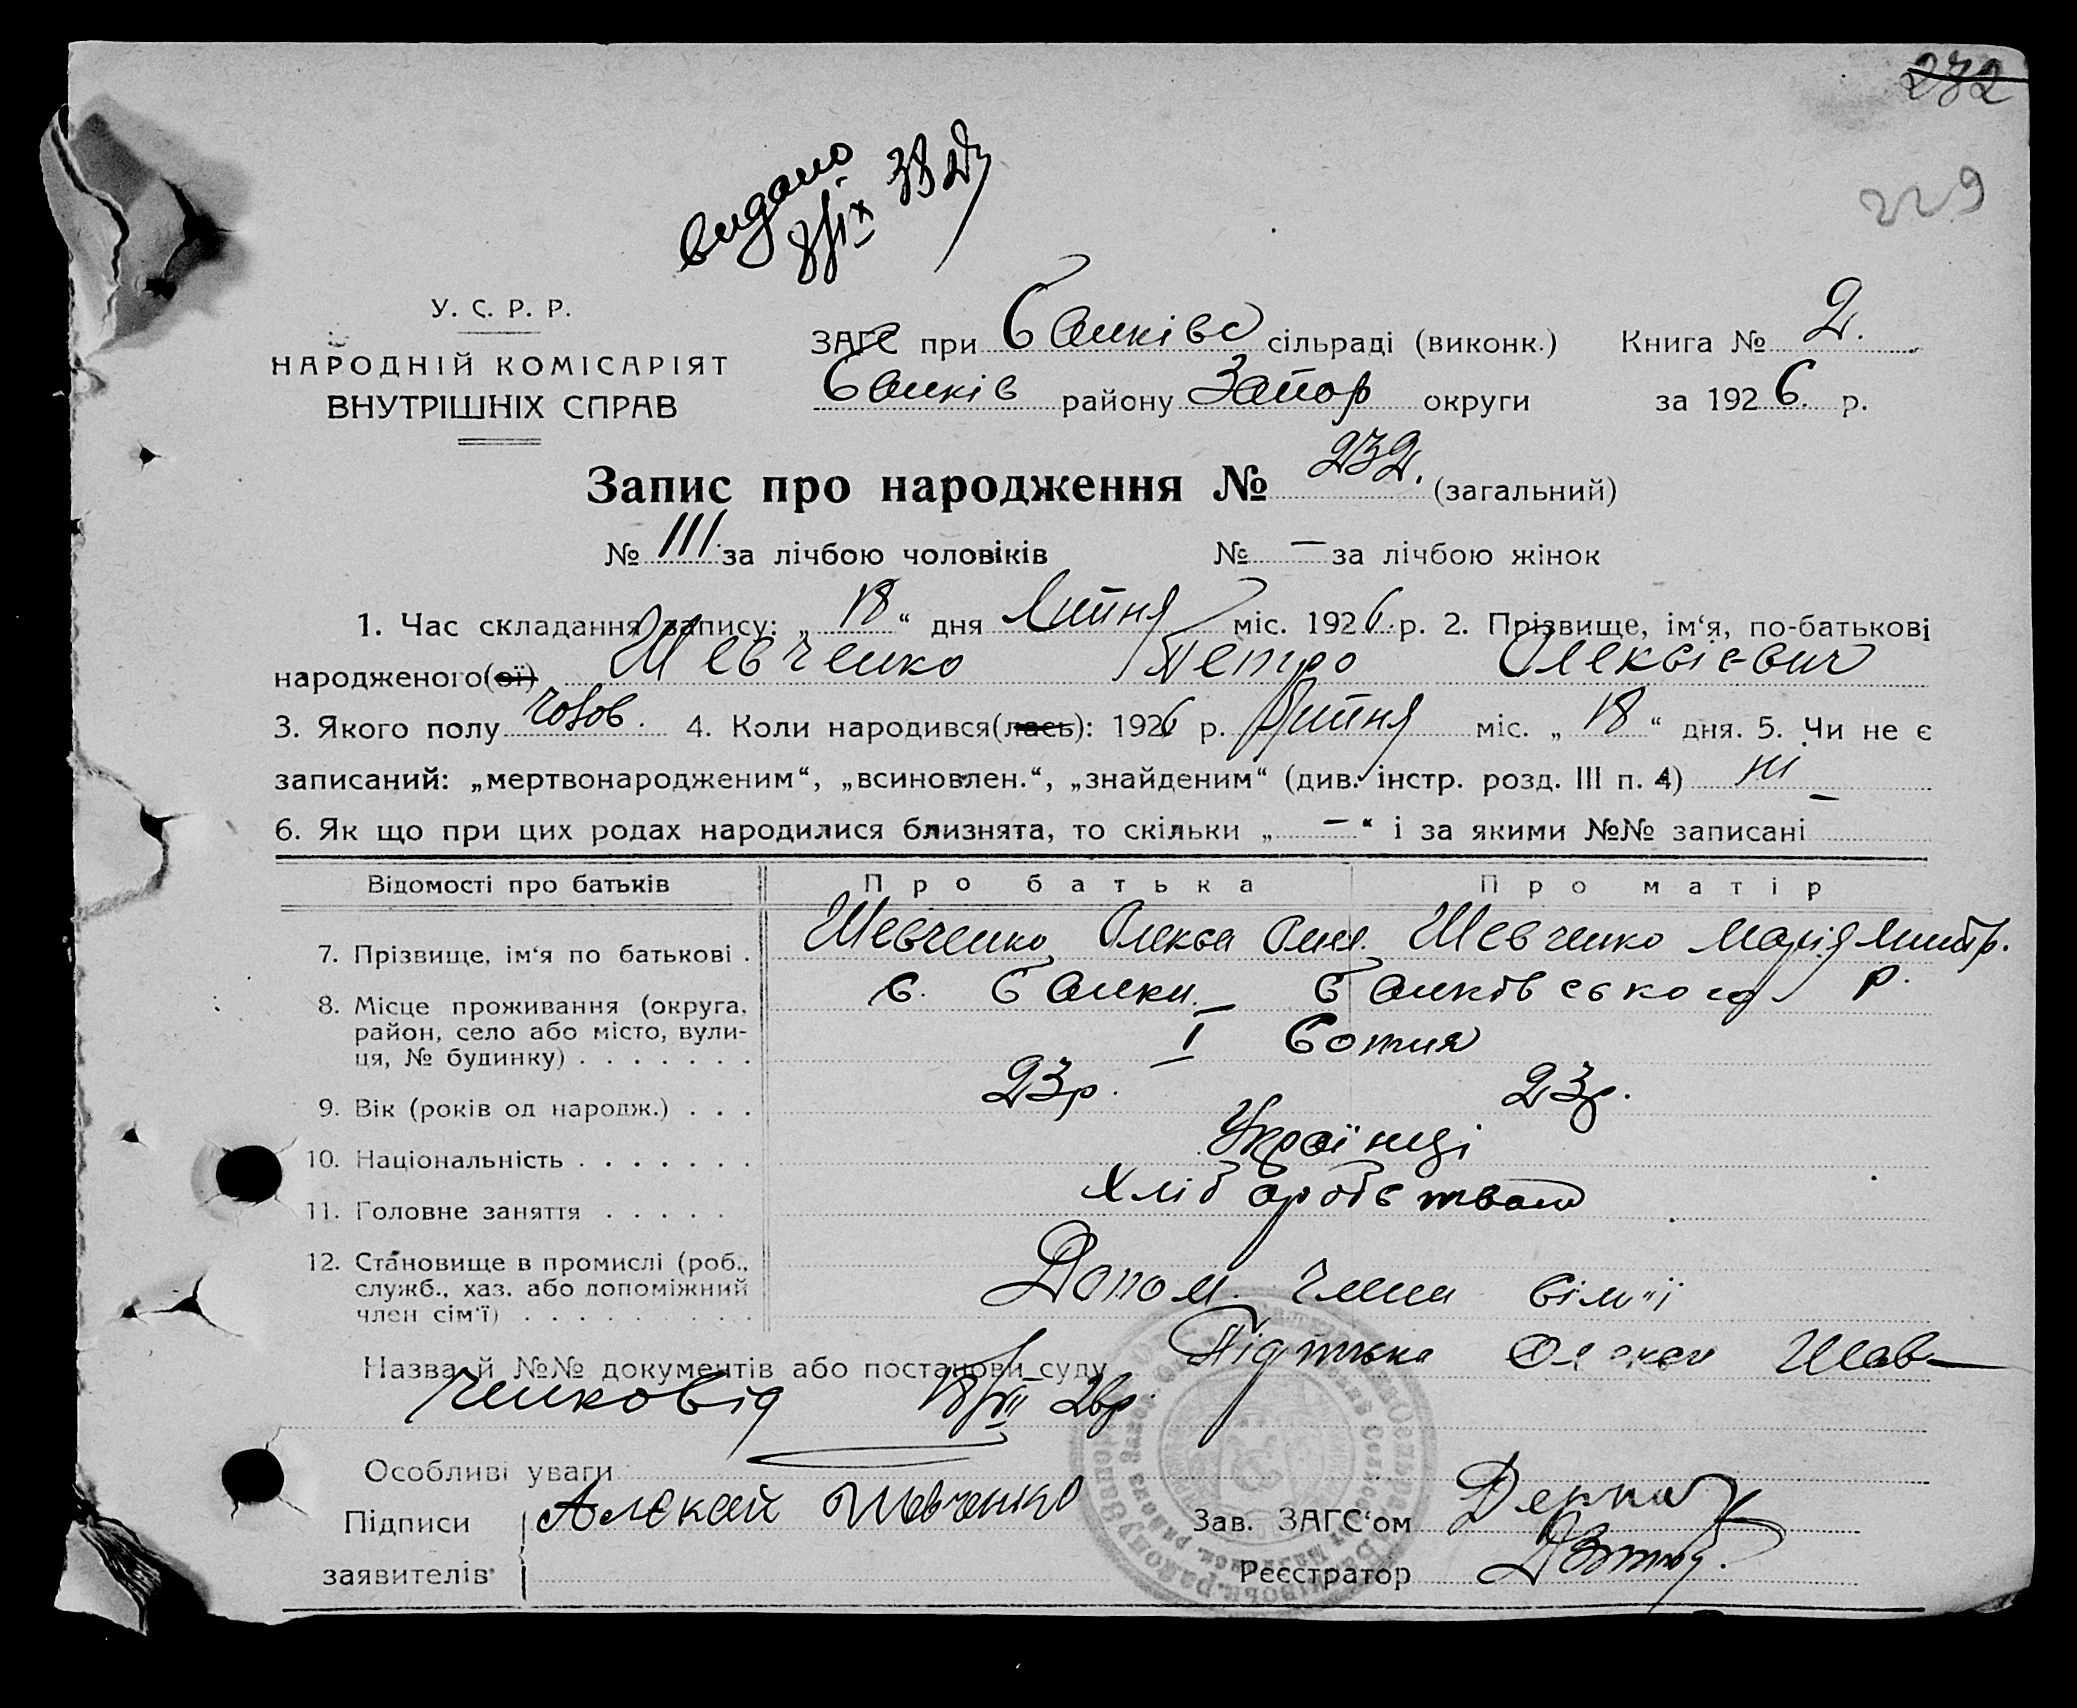 232
229
видано
У. С. Р. Р.
НАРОДНІЙ КОМІСАРІЯТ
ВНУТРІШНІХ СПРАВ
ЗАГС при Балківс сільраді (виконк.) Книга № 2.
Балків району Запор округи за 1926. р.
Запис про народження № 232. (загальний)
№ 111. за лічбою чоловіків № — за лічбою жінок
1. Час складання запису: „ 18 “ дня Липня міс. 1926 р. 2. Прізвище, ім‘я, по-батькові
народженого(ої) Шевченко Петро Олексієвич
3. Якого полу Чолов. 4. Коли народився(лась): 1926 р. Липня міс. „ 18 “ дня. 5. Чи не є
записаний: „мертвонародженим“, „всиновлен.“, „знайденим“ (див. інстр. розд. III п. 4) ні
6. Як що при цих родах народилися близнята, то скільки „ — “ і за якими №№ записані —
Відомості про батьків Про батька Про матір
7. Прізвище, ім‘я по батькові . Шевченко Олекса Шевченко Марія Дмитр.
8. Місце проживання (округа, с. Балки Балківського р.
район, село або місто, вули-
ця, № будинку) . . . . . . . I Сотня
9. Вік (років од народж.) . . . 23р. 23р.
10. Національність . . . . . . . Українці
11. Головне заняття . . . . . Хліборобством
12. Становище в промислі (роб., Допом. члени сім'ї
служб., хаз. або допоміжний
член сім‘ї) . . . . . . . . .
Назва й №№ документів або постанови суду Підписка Олекси Шев-
ченко від 18/VII 26р.
Особливі уваги
Підписи Алєксій Шевченко Зав. ЗАГС‘ом
заявителів Реєстратор